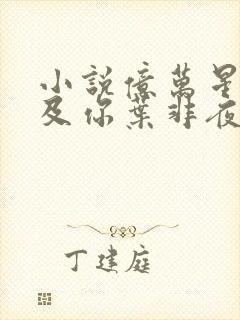 小說億萬星
及你葉非夜
丁建庭